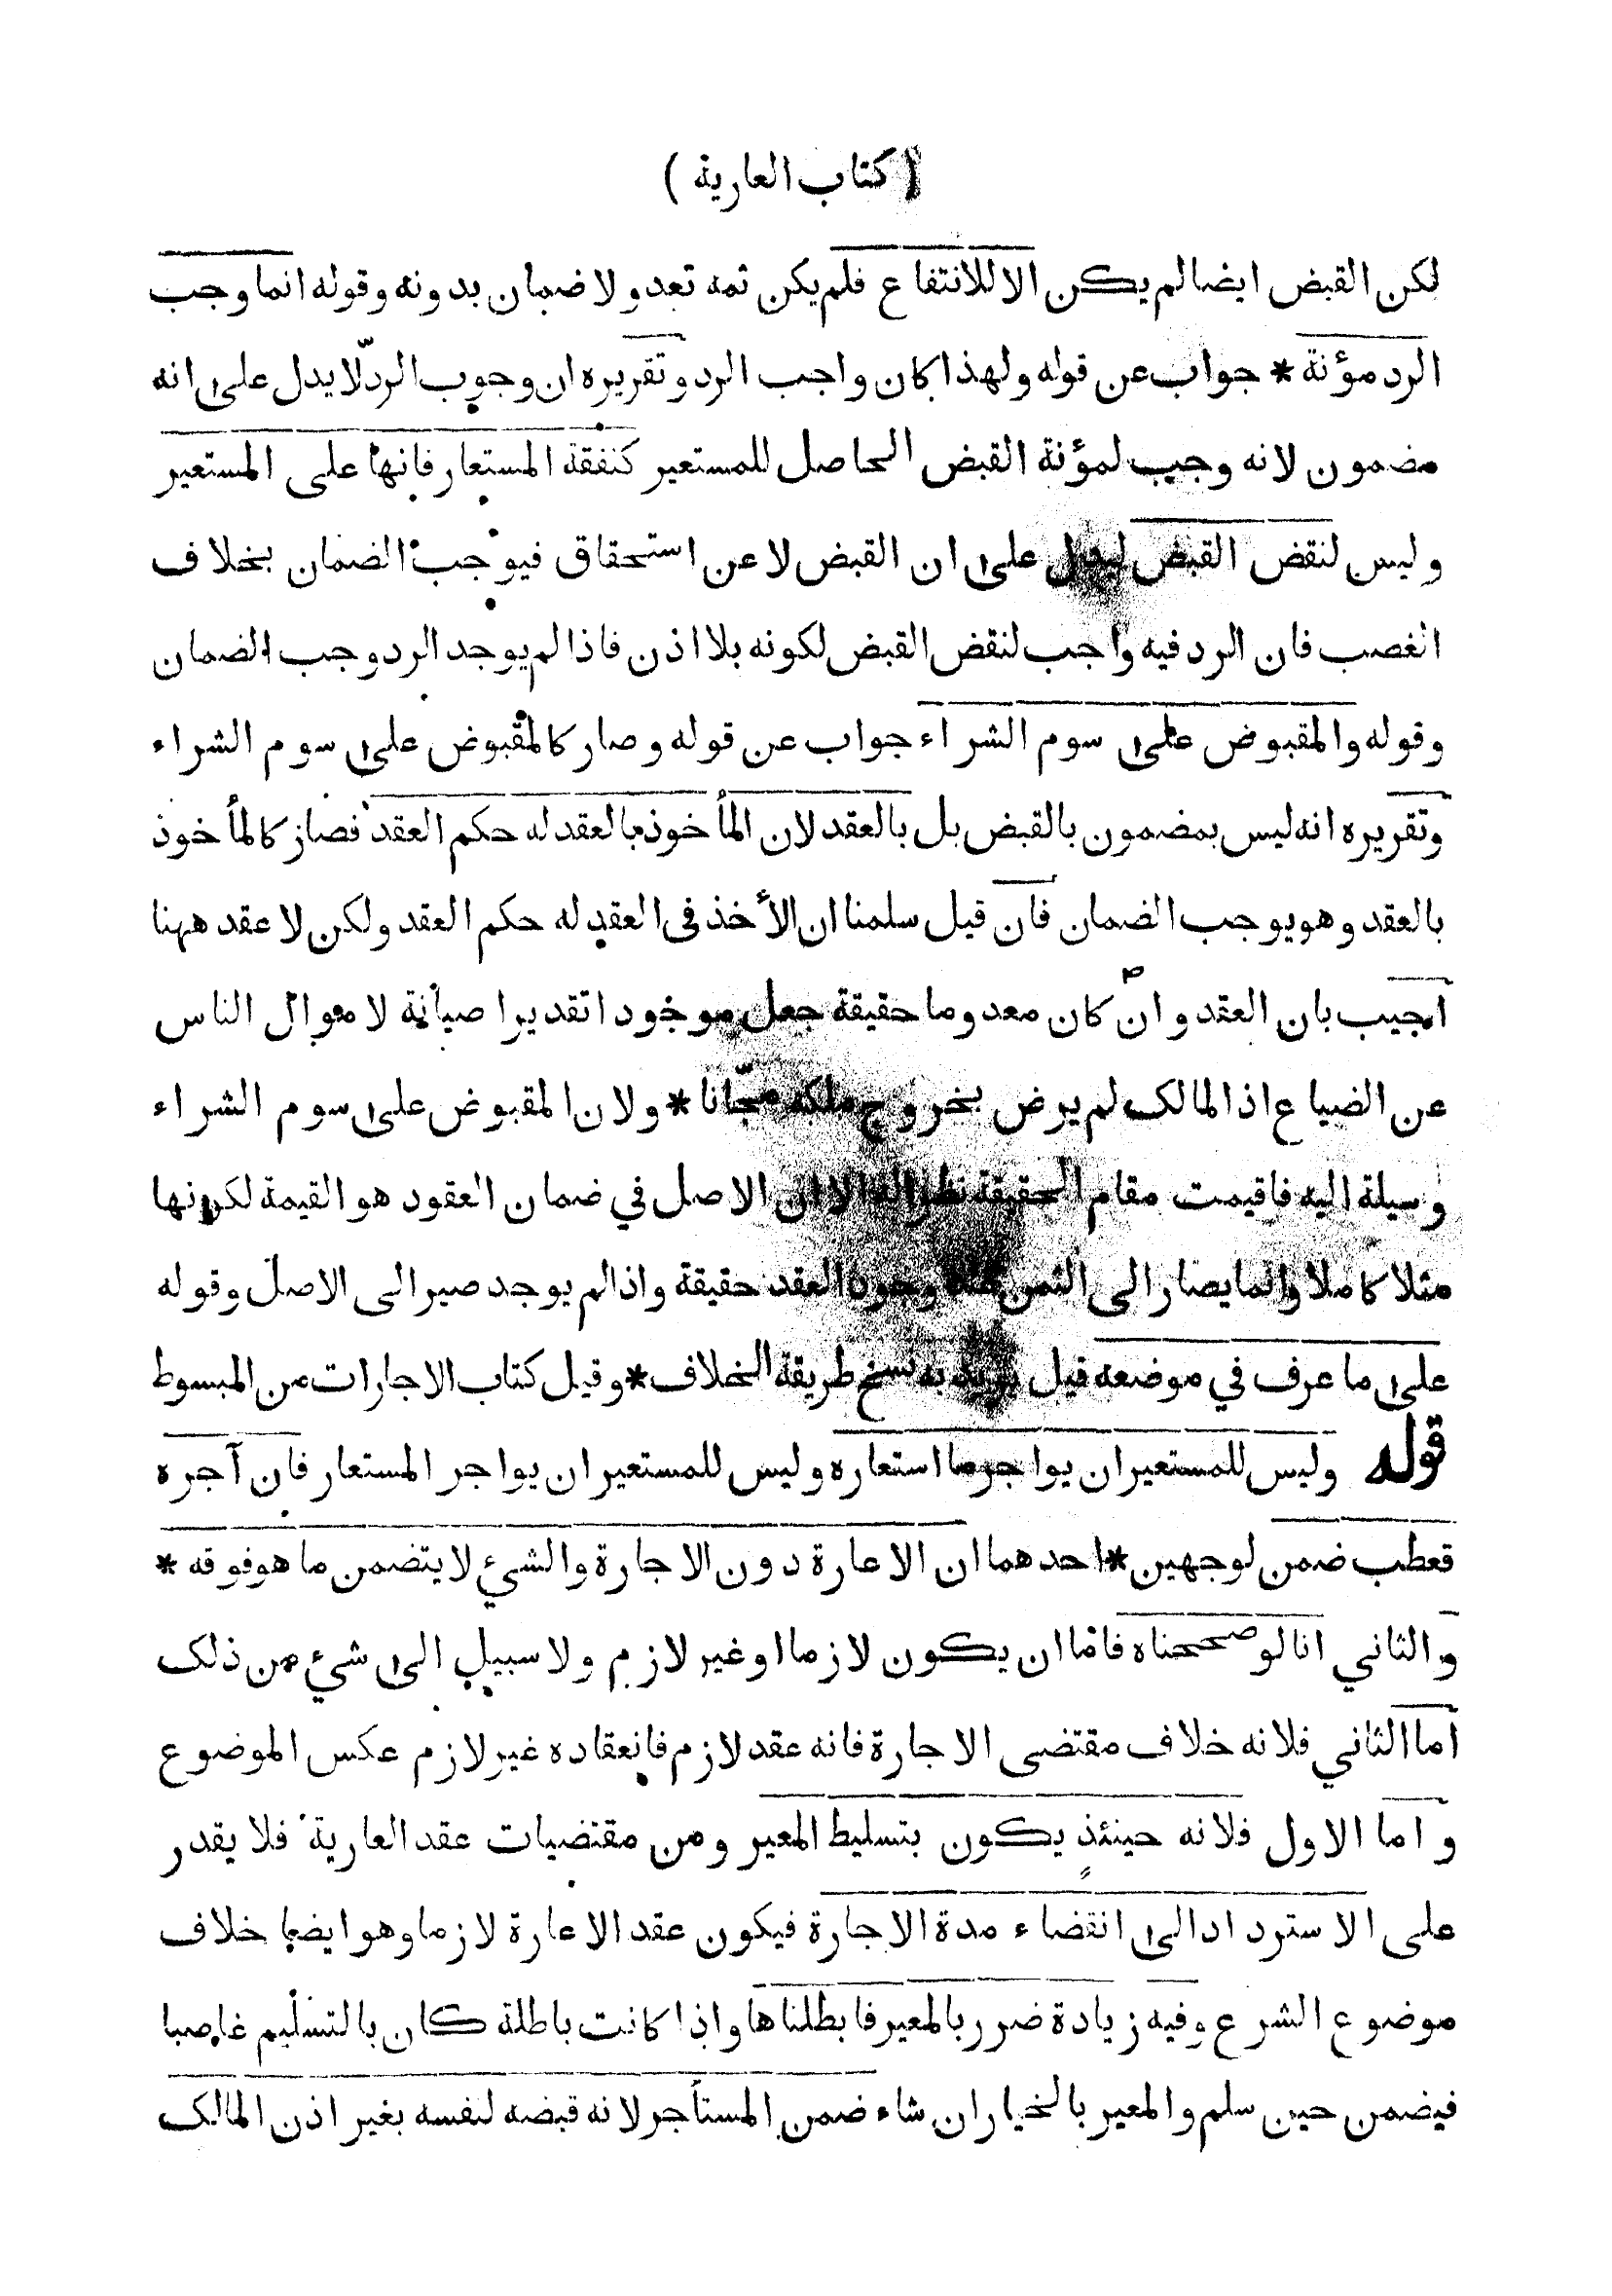 ( كتاب العارية )
لكن القبض ايضا لم يكن الا للانتفاع فلم يكن ثمه تعد ولا ضمان بدونه وقوله انما وجب
الرد مؤنة * جواب عن قوله ولهذا كان واجب الرد وتقريره ان وجوب الردّ لا يدل على انه
مضمون لانه وجب لمؤنة القبض الحاصل للمستعير كنفقة المستعار فانها على المستعير
وليس لنقض القبض ليدل على ان القبض لا عن استحقاق فيوجب الضمان بخلاف
الغصب فان الرد فيه واجب لنقض القبض لكونه بلا اذن فاذا لم يوجد الرد وجب الضمان
وقوله والمقبوض على سوم الشراء جواب عن قوله وصار كالمقبوض على سوم الشراء
وتقريره انه ليس بمضمون بالقبض بل بالعقد لان المأخوذ بالعقد له حكم العقد فصار كالمأخوذ
بالعقد وهو يوجب الضمان فان قيل سلمنا ان الأخذ في العقد له حكم العقد ولكن لا عقد ههنا
اجيب بان العقد وان كان معدوما حقيقة جعل موجودا تقديرا صيانة لاموال الناس
عن الضياع اذ المالك لم يرض بخروج ملكه مجّانا * ولان المقبوض على سوم الشراء
وسيلة اليه فاقيمت مقام الحقيقة نظرا له الا ان الاصل في ضمان العقود هو القيمة لكونها
مثلا كاملا وانما يصار الى الثمن عند وجود العقد حقيقة واذا لم يوجد صير الى الاصل وقوله
على ما عرف في موضعه قيل يريد به نسخ طريقة الخلاف * وقيل كتاب الاجارات من المبسوط
قوله وليس للمستعير ان يواجر ما استعاره وليس للمستعير ان يواجر المستعار فان آجره
فعطب ضمن لوجهين * احدهما ان الاعارة دون الاجارة والشيء لا يتضمن ما هو فوقه *
والثاني انا لو صححناه فاما ان يكون لازما او غير لازم ولا سبيل الى شيء من ذلك
اما الثاني فلانه خلاف مقتضى الاجارة فانه عقد لازم فانعقاده غير لازم عكس الموضوع
واما الاول فلانه حينئذ يكون بتسليط المعير ومن مقتضيات عقد العارية فلا يقدر
على الاسترداد الى انقضاء مدة الاجارة فيكون عقد الاعارة لازما وهو ايضا خلاف
موضوع الشرع وفيه زيادة ضرر بالمعير فابطلناها واذا كانت باطلة كان بالتسليم غاصبا
فيضمن حين سلم والمعير بالخيار ان شاء ضمن المستأجر لانه قبضه لنفسه بغير اذن المالك